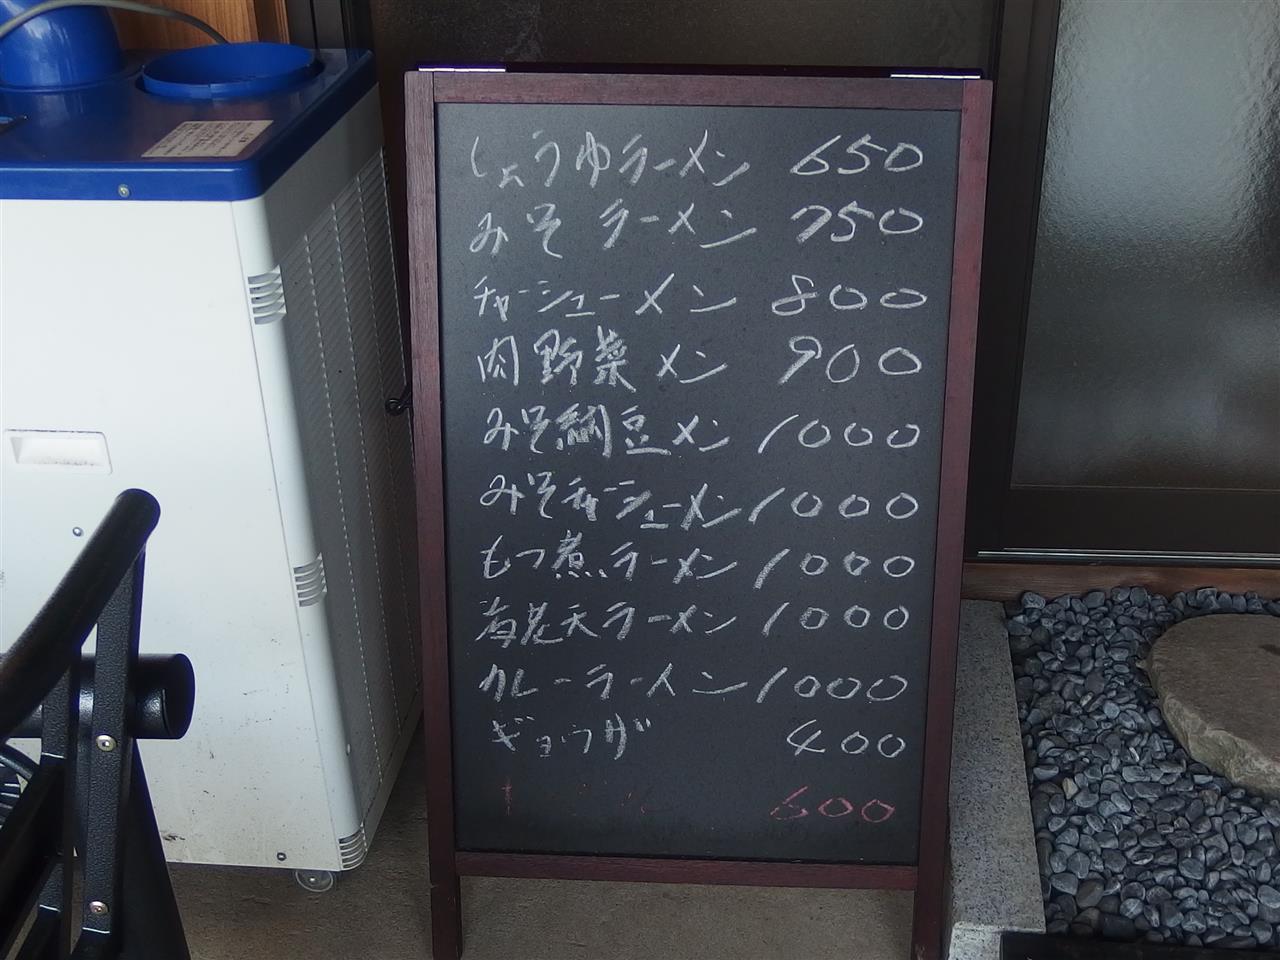 しょうゆラーメン 650
みそラーメン 750
チャーシューメン 800
肉野菜メン 900
みそ納豆メン 1000
みそチャーシューメン 1000
もつ煮ラーメン 1000
海老天ラーメン 1000
カレーラーメン 1000
ギョウザ 400
600